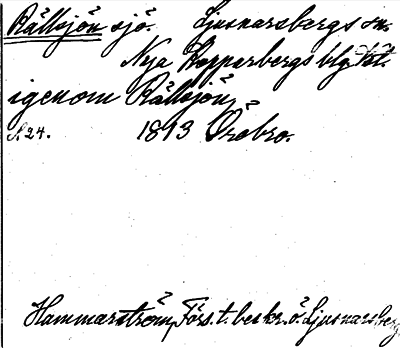 Rällsjön sjö. Ljusnarsbergs sn.
Nya Kopparbergs blg
igenom Rällsjön
S. 24. 1813 Örebro.
Hammarström, Förs. t. beskr. ö. Ljusnarsberg